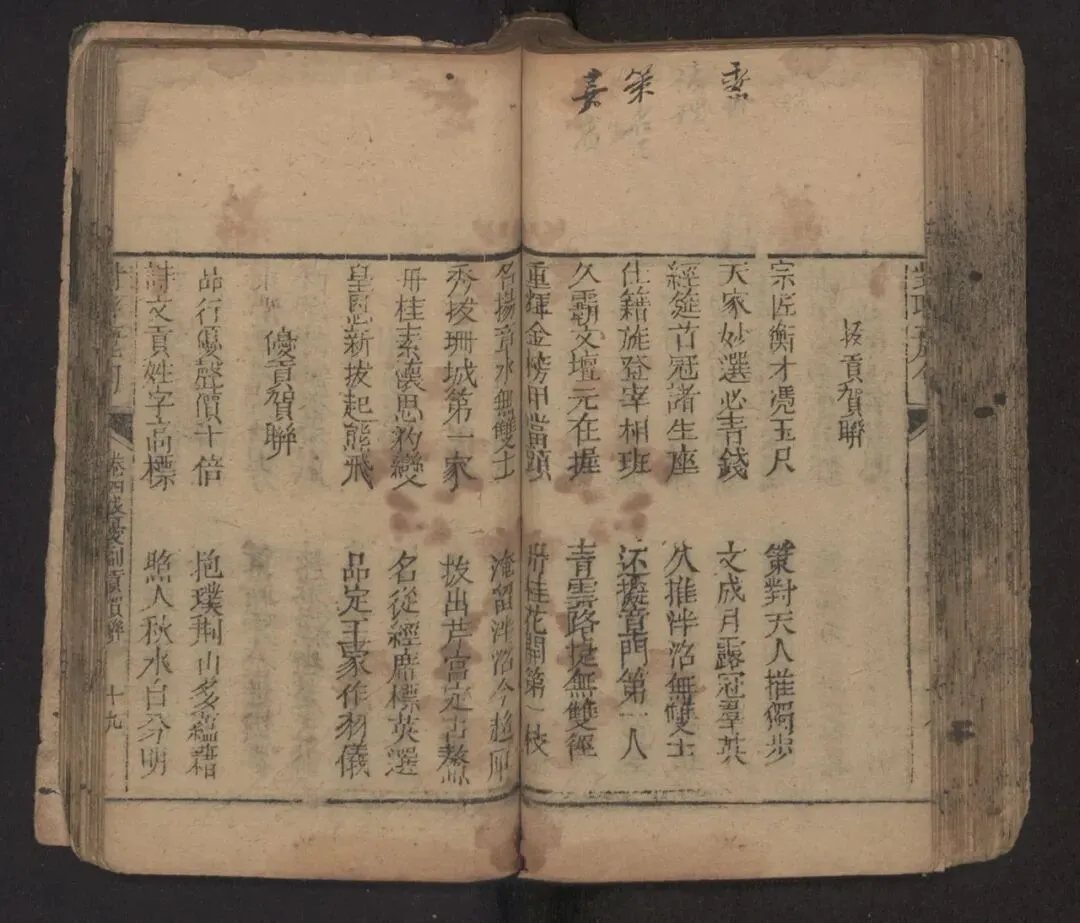 策
拔貢賀聯
宗匠衡才憑玉尺 策對天人推獨步
天家妙選必青錢 文成月露冠羣英
經筵首冠諸生座 久推泮沼無雙士
仕籍旋登宰相班 还擬章門第一人
久霸文壇元在握 青雲路捷無雙徑
重輝金榜甲當頭 丹桂花開第一枝
名揚章水無雙士 淹留泮沼今趨
秀拔珊城第一家 拔出芹宮定占鰲
丹桂素懷思豹變 名從經席標英選
皇恩新拔起熊飛 品定王家作羽儀
優貢賀聯
品行優聲價十倍 抱璞荆山多蘊藉
詩文貢姓字高標 照人秋水自分明
卷四 拔優副貢賀聯 十九